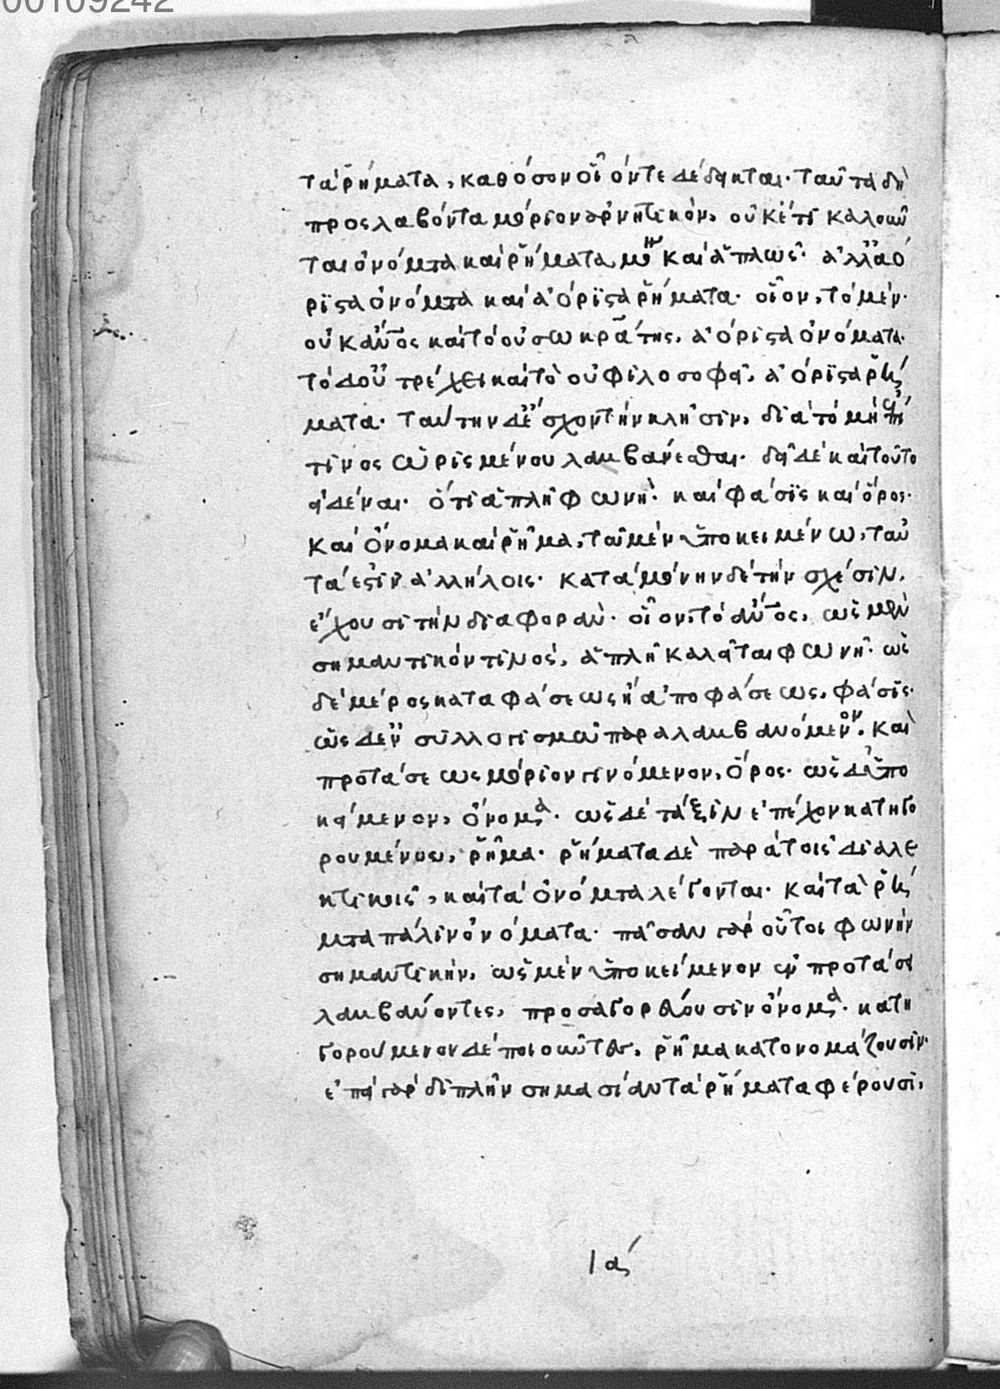 00109242
τὰ ῥήματα, καθόσον οἷόν τε δέδεικται· ταῦτα δὴ
προσλαβόντα μόριον ἀρνητικὸν, οὐκέτι καλοῦν
ται ὀνόματα καὶ ῥήματα μόνον καὶ ἁπλῶς· ἀλλὰ ἀό
ριστα ὀνόματα καὶ ἀόριστα ῥήματα· οἷον, τὸ μὲν
οὐκ αὐτὸς καὶ τὸ οὐ σωκράτης, ἀόριστα ὀνόματα.
τὸ δ' οὐ τρέχει καὶ τὸ οὐ φιλοσοφεῖ, ἀόριστα ῥή
ματα· ταύτην δὲ ἔσχον τὴν κλῆσιν, διὰ τὸ μὴ ἐπί
τινος ὡρισμένου λαμβάνεσθαι. δεῖ δὲ καὶ τοῦτο
εἰδέναι· ὅτι ἁπλῆ φωνὴ· καὶ φάσις καὶ ὅρος·
καὶ ὄνομα καὶ ῥῆμα, τῷ μὲν ὑποκειμένω, ταυ
τά ἐστιν ἀλλήλοις· κατὰ μόνην δὲ τὴν σχέσιν,
ἔχουσι τὴν διαφοράν· οἷον, τὸ αὐτὸς, ὡς μὲν
σημαντικόν τινος, ἁπλῆ καλεῖται φωνὴ· ὡς
δὲ μέρος καταφάσεως ἢ ἀποφάσεως, φάσις·
ὡς δ' ἐν συλλογισμῶ παραλαμβανόμενον, καὶ
προτάσεως μόριον γινόμενον, ὅρος· ὡς δ' ὑπο
κείμενον, ὄνομα· ὡς δὲ τάξιν ἐπέχον κατηγο
ρουμένου, ῥῆμα· ῥήματα δὲ παρὰ τοῖς διαλε
κτικοῖς, καὶ τὰ ὀνόματα λέγονται· καὶ τὰ ῥή
ματα πάλιν ὀνόματα· πᾶσαν γὰρ οὗτοι φωνὴν
σημαντικὴν, ὡς μὲν ὑποκείμενον ἐν προτάσει
λαμβάνοντες, προσαγορεύουσιν ὄνομα· κατη
γορούμενον δὲ ποιοῦντες, ῥῆμα κατονομάζουσιν·
ἐπεὶ γὰρ διπλῆν σημασίαν τὰ ῥήματα φέρουσι,
ια